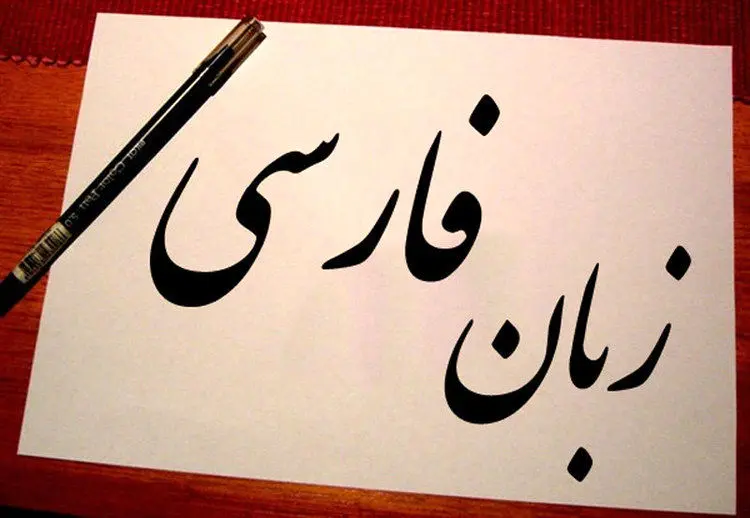 زبان
فارسی